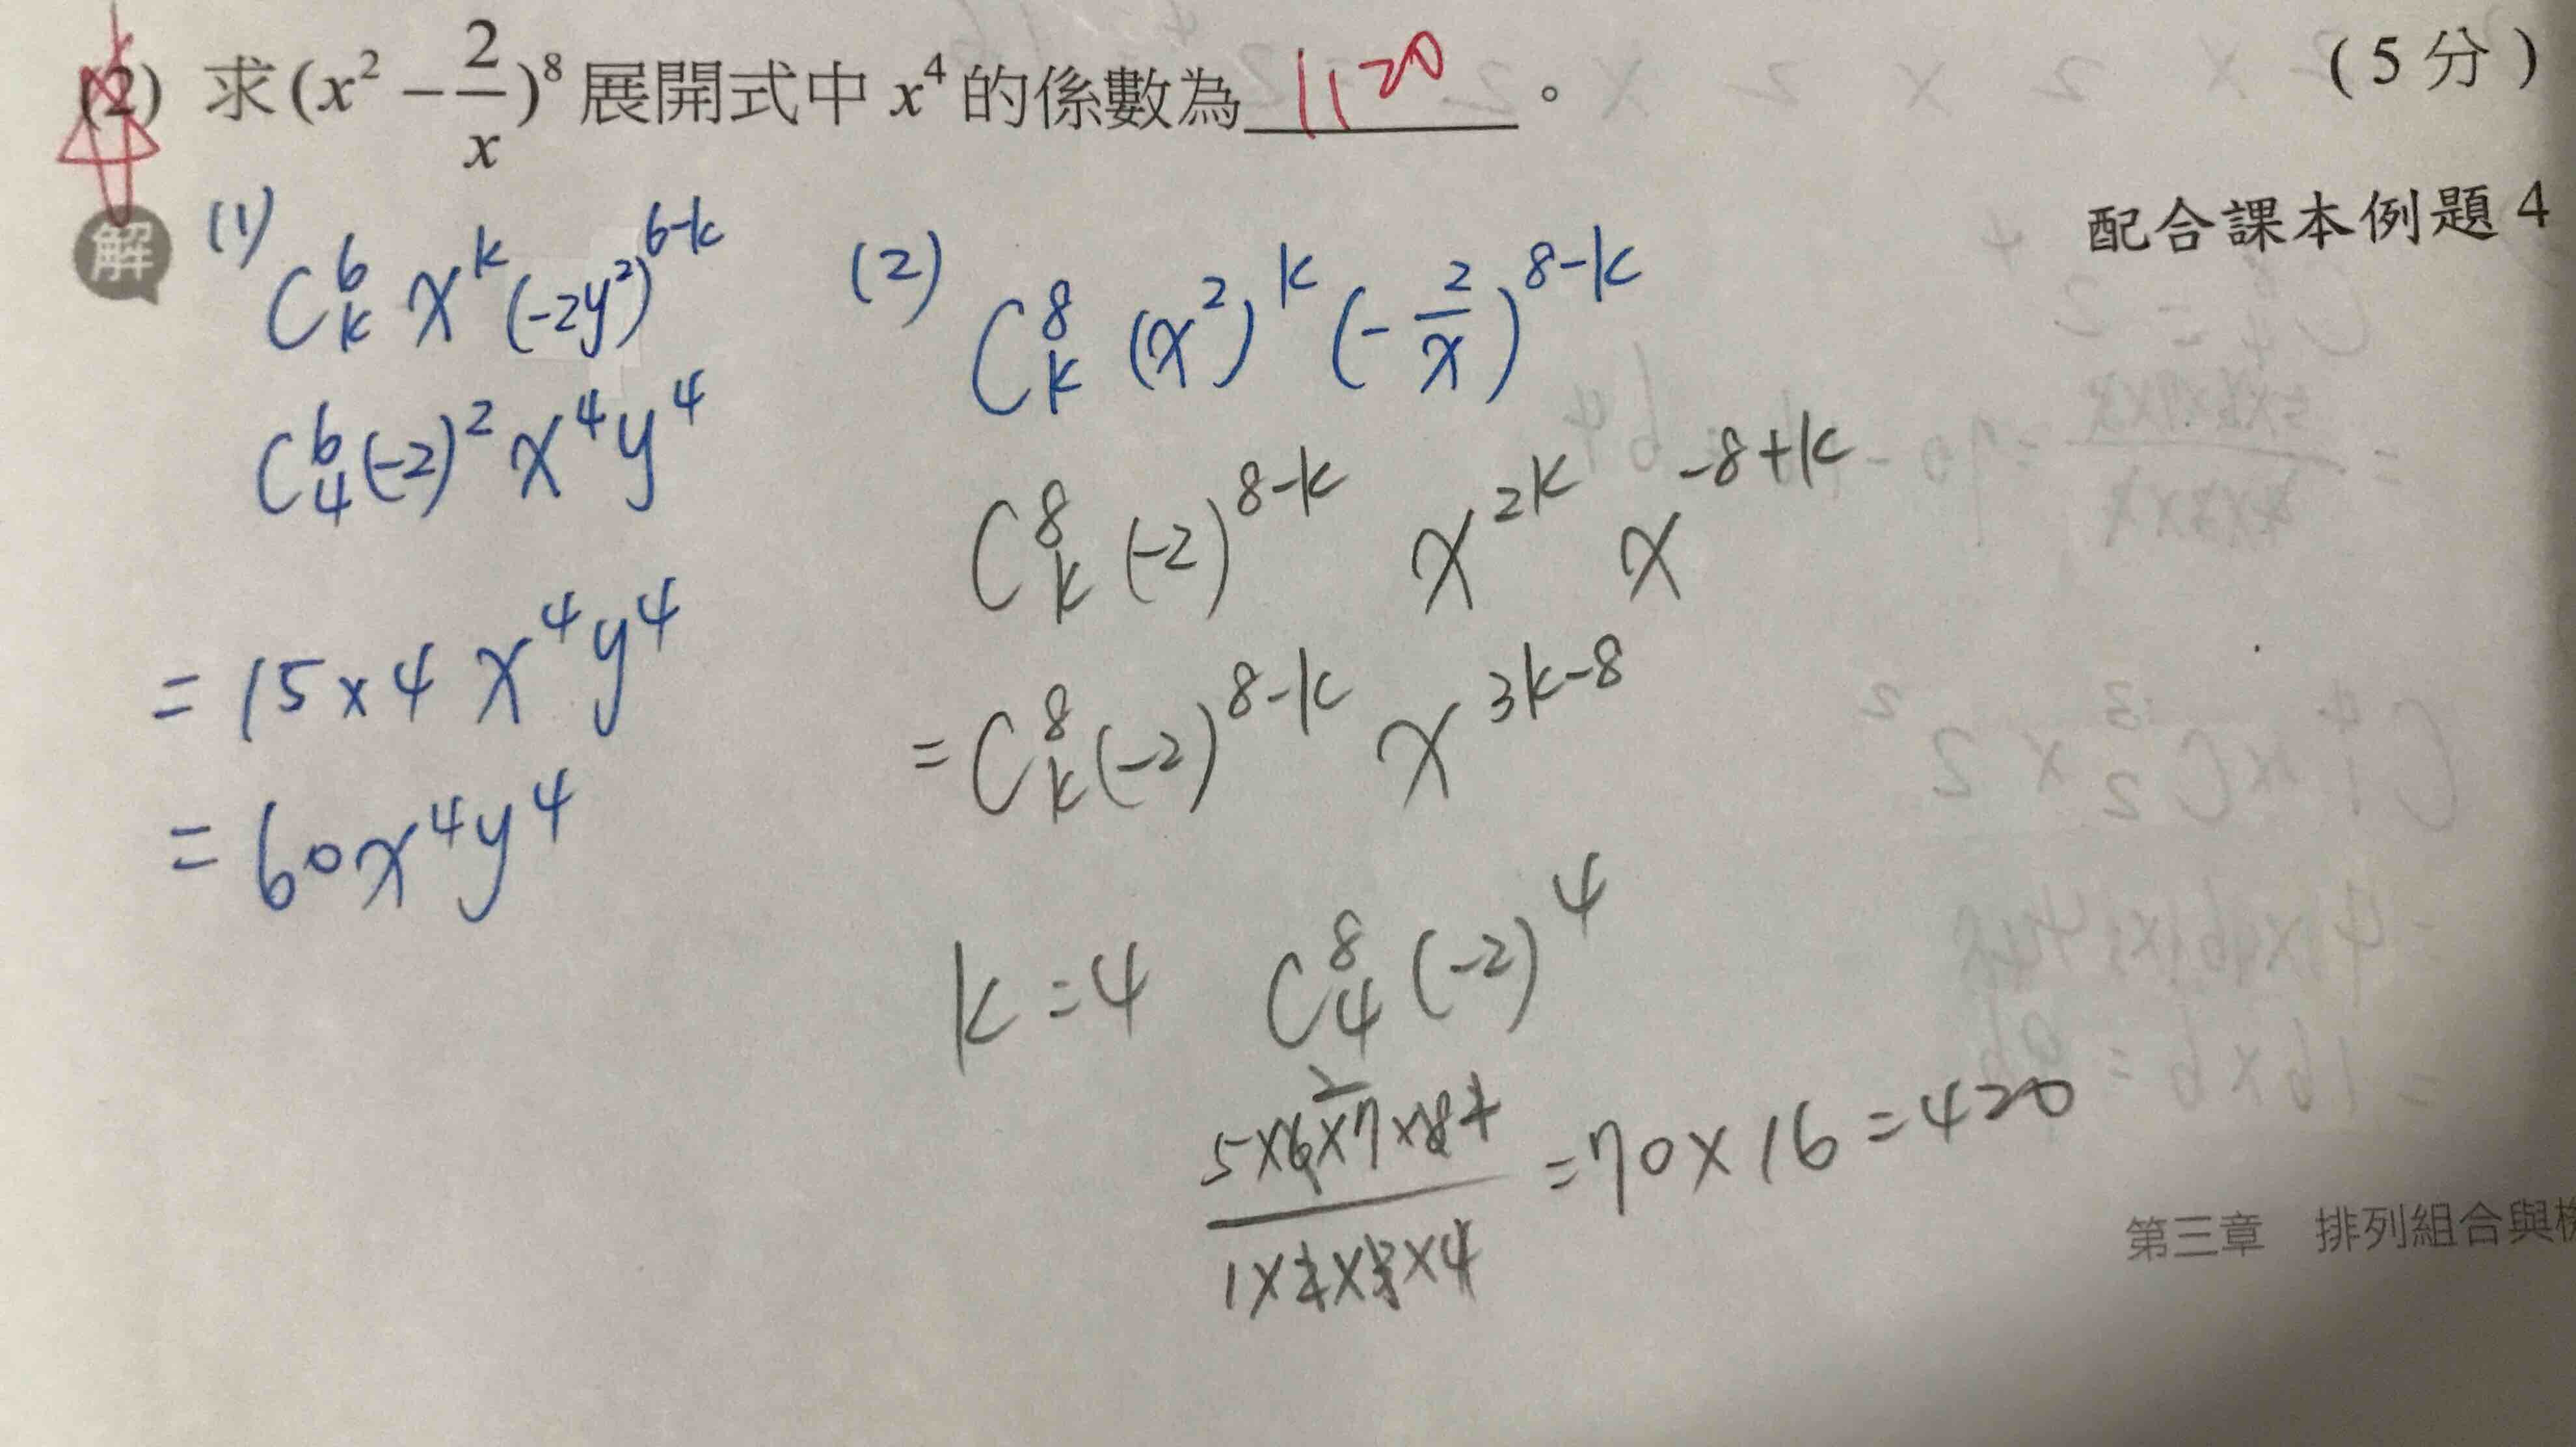 (2) 求(x² − 2/x)⁸展開式中 x⁴ 的係數為 1120 。 (5分)
配合課本例題 4
解
(1)
C⁶ₖ xᵏ (-2y²)⁶⁻ᵏ
C⁶₄ (-2)² x⁴y⁴
= 15×4 x⁴y⁴
= 60x⁴y⁴
(2)
C⁸ₖ (x²)ᵏ (-2/x)⁸⁻ᵏ
C⁸ₖ (-2)⁸⁻ᵏ x²ᵏ x⁻⁸⁺ᵏ
= C⁸ₖ (-2)⁸⁻ᵏ x³ᵏ⁻⁸
k=4 C⁸₄ (-2)⁴
5×6×7×8 / 1×2×3×4 = 70×16 = 420
第三章 排列組合與